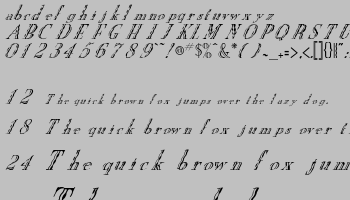 a b c d e f g h i j k l m n o p q r s t u v w x y z
A B C D E F G H I J K L M N O P Q R S T U
0 1 2 3 4 5 6 7 8 9 ~ ! @ # $ % ^ & * ( ) - _ + = > . < , [ ] { }
12 The quick brown fox jumps over the lazy dog.
18 The quick brown fox jumps over
24 The quick brown fox jum